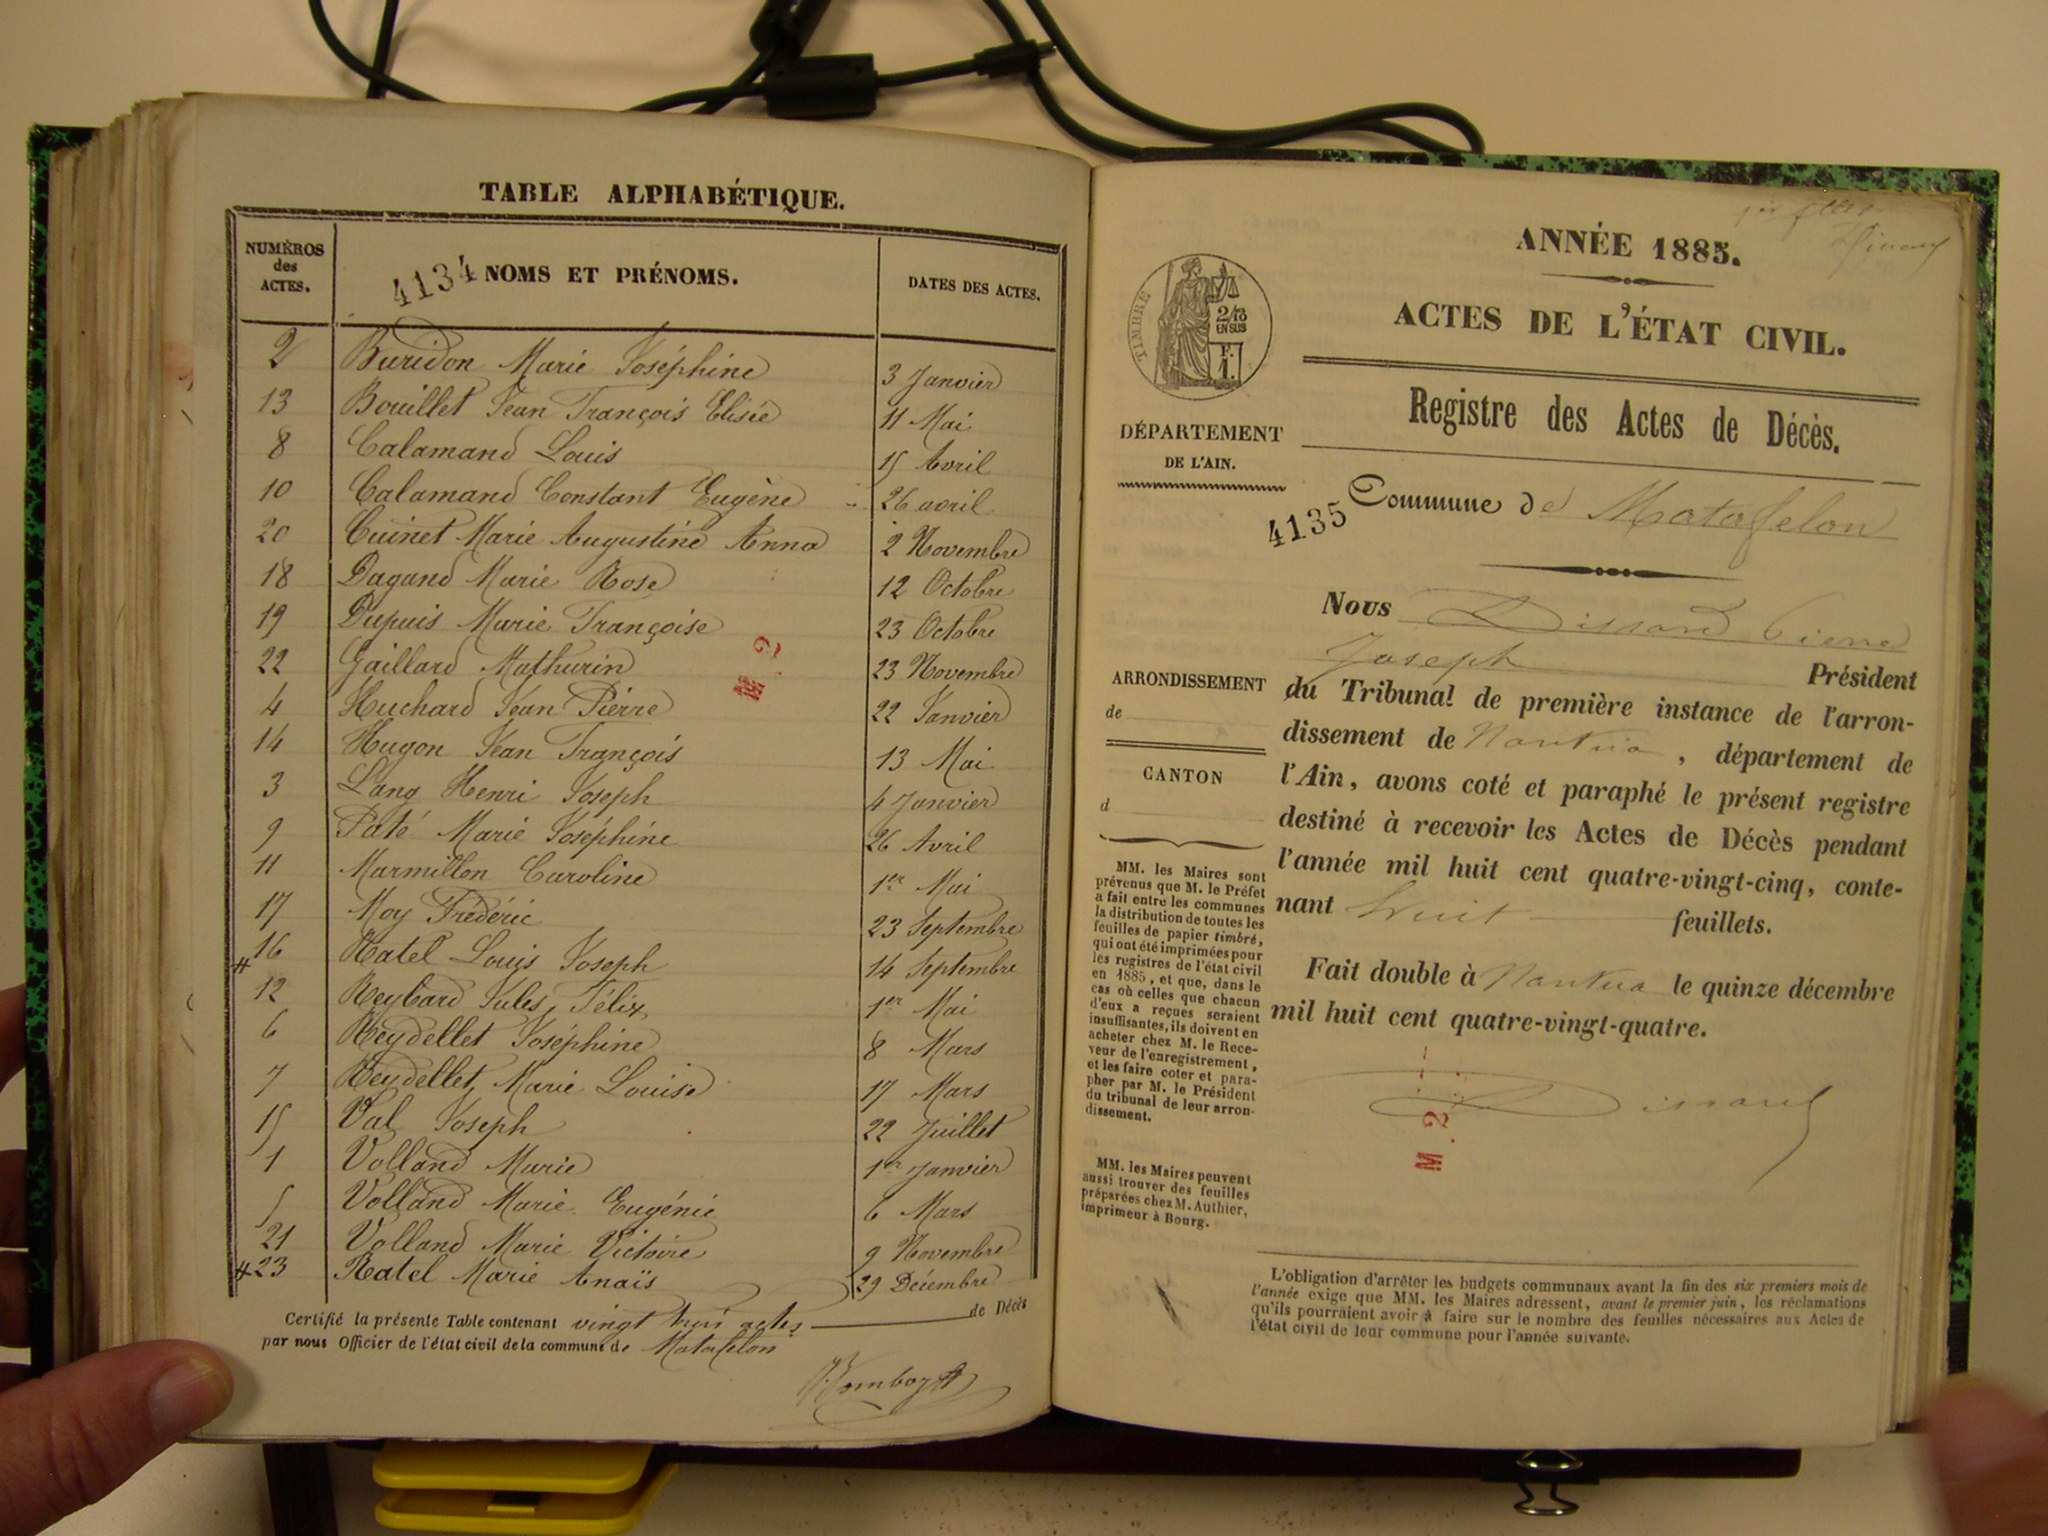 TABLE ALPHABÉTIQUE.
NUMÉROS
des
ACTES.
4134 NOMS ET PRÉNOMS.
DATES DES ACTES.
2 Buridon Marie Joséphine 3 Janvier
13 Bouillet Jean François Elisée 11 Mai
8 Calamand Louis 15 Avril
10 Calamand Constant Eugène 26 avril
20 Cuinet Marie Augustine Anna 2 Novembre
18 Dagand Marie Rose 12 Octobre
19 Dupuis Marie Françoise 23 Octobre
22 Gaillard Mathurin 23 Novembre
4 Huchard Jean Pierre 22 Janvier
14 Hugon Jean François 13 Mai
3 Lang Henri Joseph 4 Janvier
9 Paté Marie Joséphine 26 Avril
11 Marmillon Caroline 1er Mai
17 Moy Frédéric 23 Septembre
16 Ratel Louis Joseph 14 Septembre
12 Reybard Jules Félix 1er Mai
6 Reydellet Joséphine 8 Mars
7 Reydellet Marie Louise 17 Mars
15 Val Joseph 22 Juillet
1 Volland Marie 1er Janvier
5 Volland Marie Eugénie 6 Mars
21 Volland Marie Victoire 9 Novembre
23 Ratel Marie Anaïs 29 Décembre
M. 2
Certifié la présente Table contenant vingt trois actes de Décès
par nous Officier de l'état civil de la commune de Matafelon
ANNÉE 1885.
ACTES DE L'ÉTAT CIVIL.
Registre des Actes de Décès.
TIMBRE
2/10
EN SUS
F.
1.
DÉPARTEMENT
DE L'AIN.
4135
Commune de Matafelon
Nous Dissard Pierre
Joseph Président
du Tribunal de première instance de l'arron-
dissement de Nantua, département de
l'Ain, avons coté et paraphé le présent registre
destiné à recevoir les Actes de Décès pendant
l'année mil huit cent quatre-vingt-cinq, conte-
nant huit feuillets.
Fait double à Nantua le quinze décembre
mil huit cent quatre-vingt-quatre.
Dissard
M. 2
ARRONDISSEMENT
de
CANTON
d
MM. les Maires sont
prévenus que M. le Préfet
a fait entre les communes
la distribution de toutes les
feuilles de papier timbré,
qui ont été imprimées pour
les registres de l'état civil
en 1885, et que, dans le
cas où celles que chacun
d'eux a reçues seraient
insuffisantes, ils doivent en
acheter chez M. le Rece-
veur de l'enregistrement,
et les faire coter et para-
pher par M. le Président
du tribunal de leur arron-
dissement.
MM. les Maires peuvent
aussi trouver des feuilles
préparées chez M. Authier,
imprimeur à Bourg.
L'obligation d'arrêter les budgets communaux avant la fin des six premiers mois de
l'année exige que MM. les Maires adressent, avant le premier juin, les réclamations
qu'ils pourraient avoir à faire sur le nombre des feuilles nécessaires aux Actes de
l'état civil de leur commune pour l'année suivante.